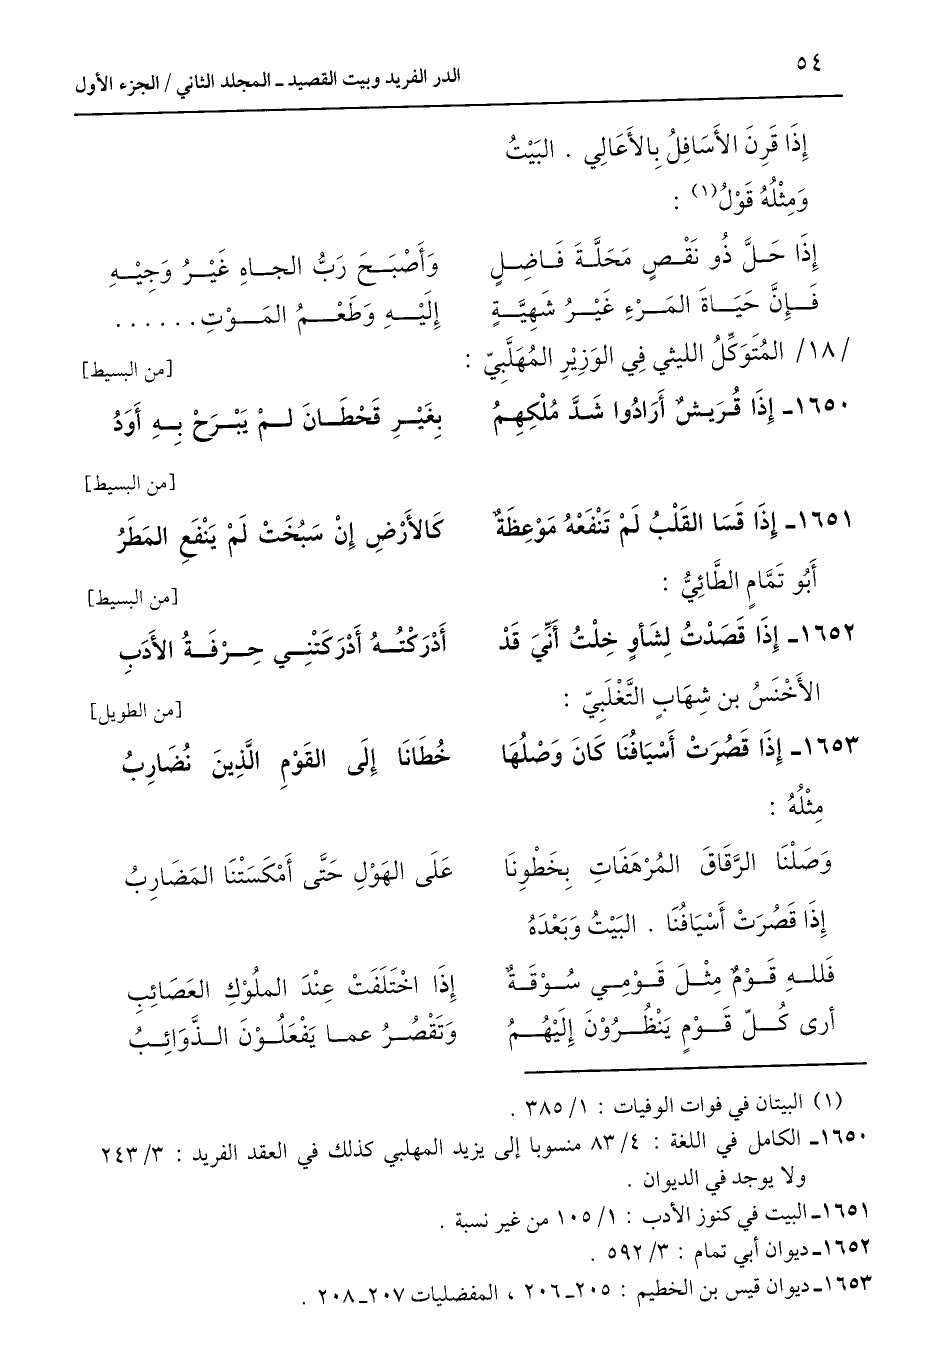 ٥٤
الدر الفريد وبيت القصيد ـ المجلد الثاني / الجزء الأول
إِذَا قَرِنَ الأَسَافِلُ بِالأَعَالِي . البَيْتُ
وَمِثْلُهُ قَوْلُ(١) :
إِذَا حَـلَّ ذُو نَقْـصٍ مَحَلَّةَ فَـاضِـلٍ وَأَصْبَـحَ رَبُّ الجـاهِ غَيْـرُ وَجِيْـهِ
فَـإِنَّ حَيَـاةَ المَـرْءِ غَيْـرُ شَهِيَّـةٍ إِلَيْـهِ وَطَعْـمُ المَـوْتِ......
/١٨/ المُتَوَكِّلُ الليثي فِي الوَزِيْرِ المُهَلَّبِيّ :
[من البسيط]
١٦٥٠ـ إِذَا قُرَيشٌ أَرَادُوا شَدَّ مُلْكِهِمُ بِغَيْرِ قَحْطَانَ لـمْ يَبْرَحْ بِـهِ أَوَدُ
[من البسيط]
١٦٥١ـ إِذَا قَسَا القَلْبُ لَمْ تَنْفَعْهُ مَوْعِظَةٌ كَالأَرْضِ إِنْ سَبُخَتْ لَمْ يَنْفَعِ المَطَرُ
أَبُو تَمَّامٍ الطَّائِيُّ :
[من البسيط]
١٦٥٢ـ إِذَا قَصَدْتُ لِشَأوٍ خِلْتُ أَنِّيَ قَدْ أَدْرَكْتُـهُ أَدْرَكَتْنِـي حِـرْفَـةُ الأَدَبِ
الأَخْنَسُ بن شِهَابٍ التَّغْلَبِيّ :
[من الطويل]
١٦٥٣ـ إِذَا قَصُرَتْ أَسْيَافُنَا كَانَ وَصْلُهَا خُطَانَا إِلَى القَوْمِ الَّذِينَ نُضَارِبُ
مِثْلُهُ :
وَصَلْنَا الرَّقَاقَ المُرْهَفَاتِ بِخَطْونَا عَلَى الهَوْلِ حَتَّى أَمْكَسَتْنَا المَضَارِبُ
إِذَا قَصُرَتْ أَسْيَافُنَا . البَيْتُ وَبَعْدَهُ
فَللـهِ قَـوْمٌ مِثْـلَ قَـوْمِـي سُـوْقَـةٌ إِذَا اخْتَلَفَتْ عِنْدَ الملُوْكِ العَصَائِبِ
أرى كُـلّ قَـوْمٍ يَنْظُـرُوْنَ إِلَيْهُـمُ وَتَقْصُـرُ عمـا يَفْعَلُـوْنَ الـذَّوَائِـبُ
(١) البيتان في فوات الوفيات : ١/ ٣٨٥ .
١٦٥٠ـ الكامل في اللغة : ٤/ ٨٣ منسوبا إلى يزيد المهلبي كذلك في العقد الفريد : ٣/ ٢٤٣
ولا يوجد في الديوان .
١٦٥١ـ البيت في كنوز الأدب : ١/ ١٠٥ من غير نسبة .
١٦٥٢ـ ديوان أبي تمام : ٣/ ٥٩٢ .
١٦٥٣ـ ديوان قيس بن الخطيم : ٢٠٥ـ ٢٠٦ ، المفضليات ٢٠٧ـ ٢٠٨ .